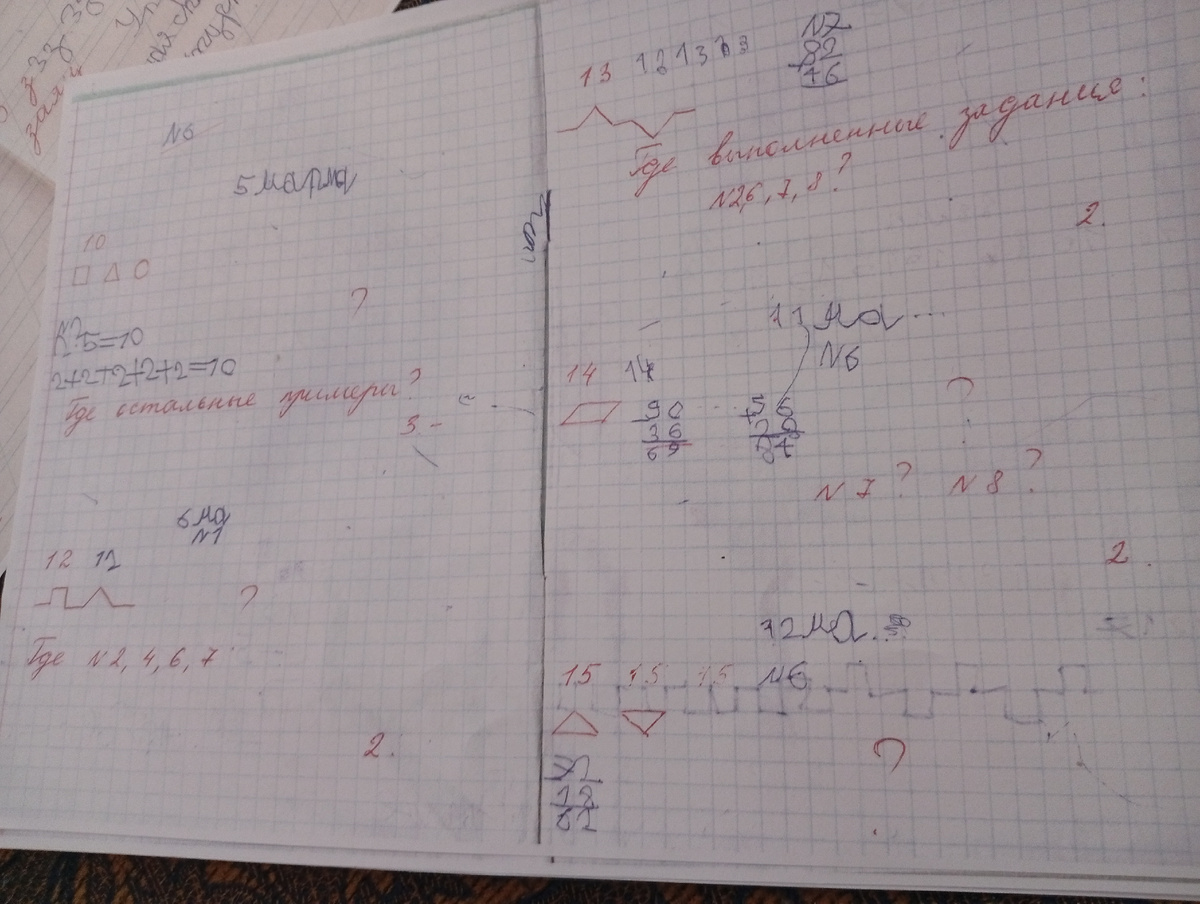 N6
5 марта
10
?
5=10
2+2+2+2+2=10
Где остальные примеры?
3-
6 ма
N1
12 11
?
Где N2, 4, 6, 7
2.
13 1 2 1 3 1 3
N7
82
46
Где выполненные задания:
N26, 7, 8?
2.
11 ма...
N6
14 14
?
90
36
69
N7? N8?
2.
12 ма...
15 15 15 N6
?
12